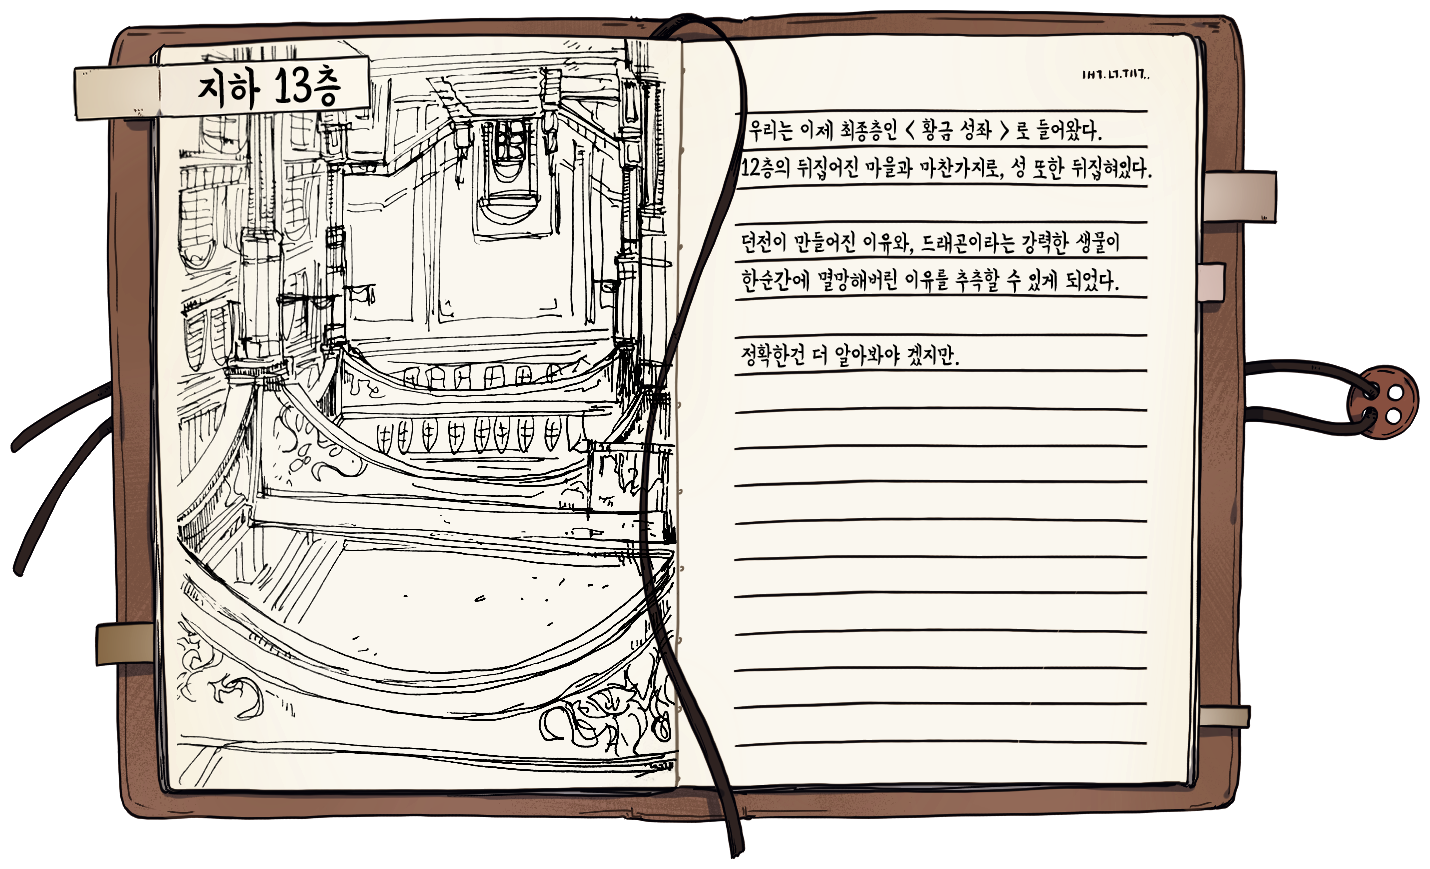 지하 13층
우리는 이제 최종층인 < 황금 성좌 > 로 들어왔다.
12층의 뒤집어진 마을과 마찬가지로, 성 또한 뒤집혀있다.
던전이 만들어진 이유와, 드래곤이라는 강력한 생물이
한순간에 멸망해버린 이유를 추측할 수 있게 되었다.
정확한건 더 알아봐야 겠지만.